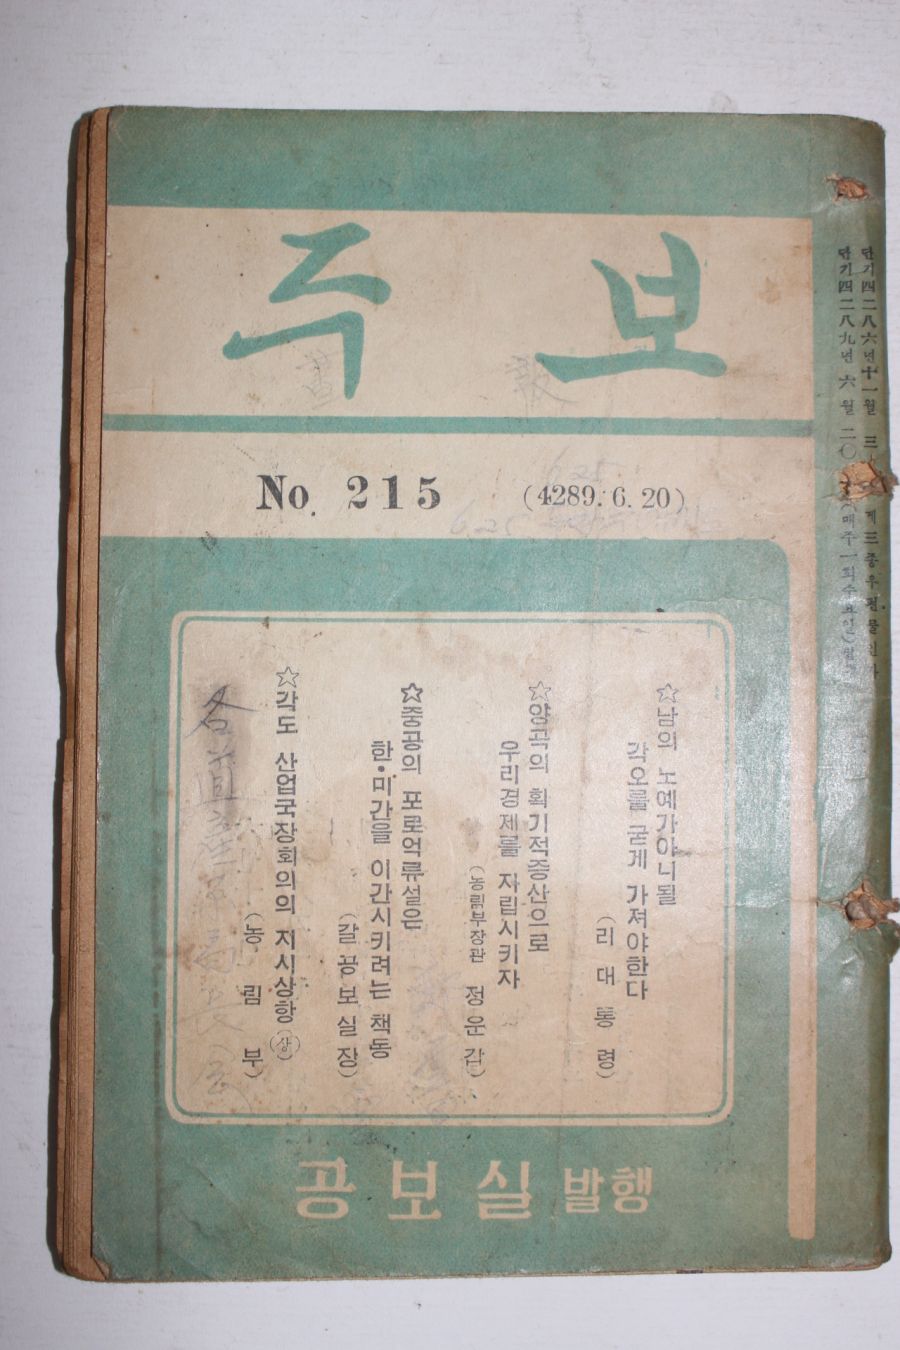 주보
No. 215 (4289. 6. 20)
단기四二八六년十一월 三
제三종우편물인가
단기四二八九년 六월 二〇
(매주一회수요일)발
☆남의 노예가아니될
각오를 굳게 가져야한다
(리대통령)
☆양곡의 획기적증산으로
우리경제를 자립시키자
(농림부장관 정운갑)
☆중공의 포로억류설은
한·미간을 이간시키려는 책동
(갈공보실장)
☆각도 산업국장회의의 지시상항(상)
(농림부)
공보실 발행
6.25
6.25